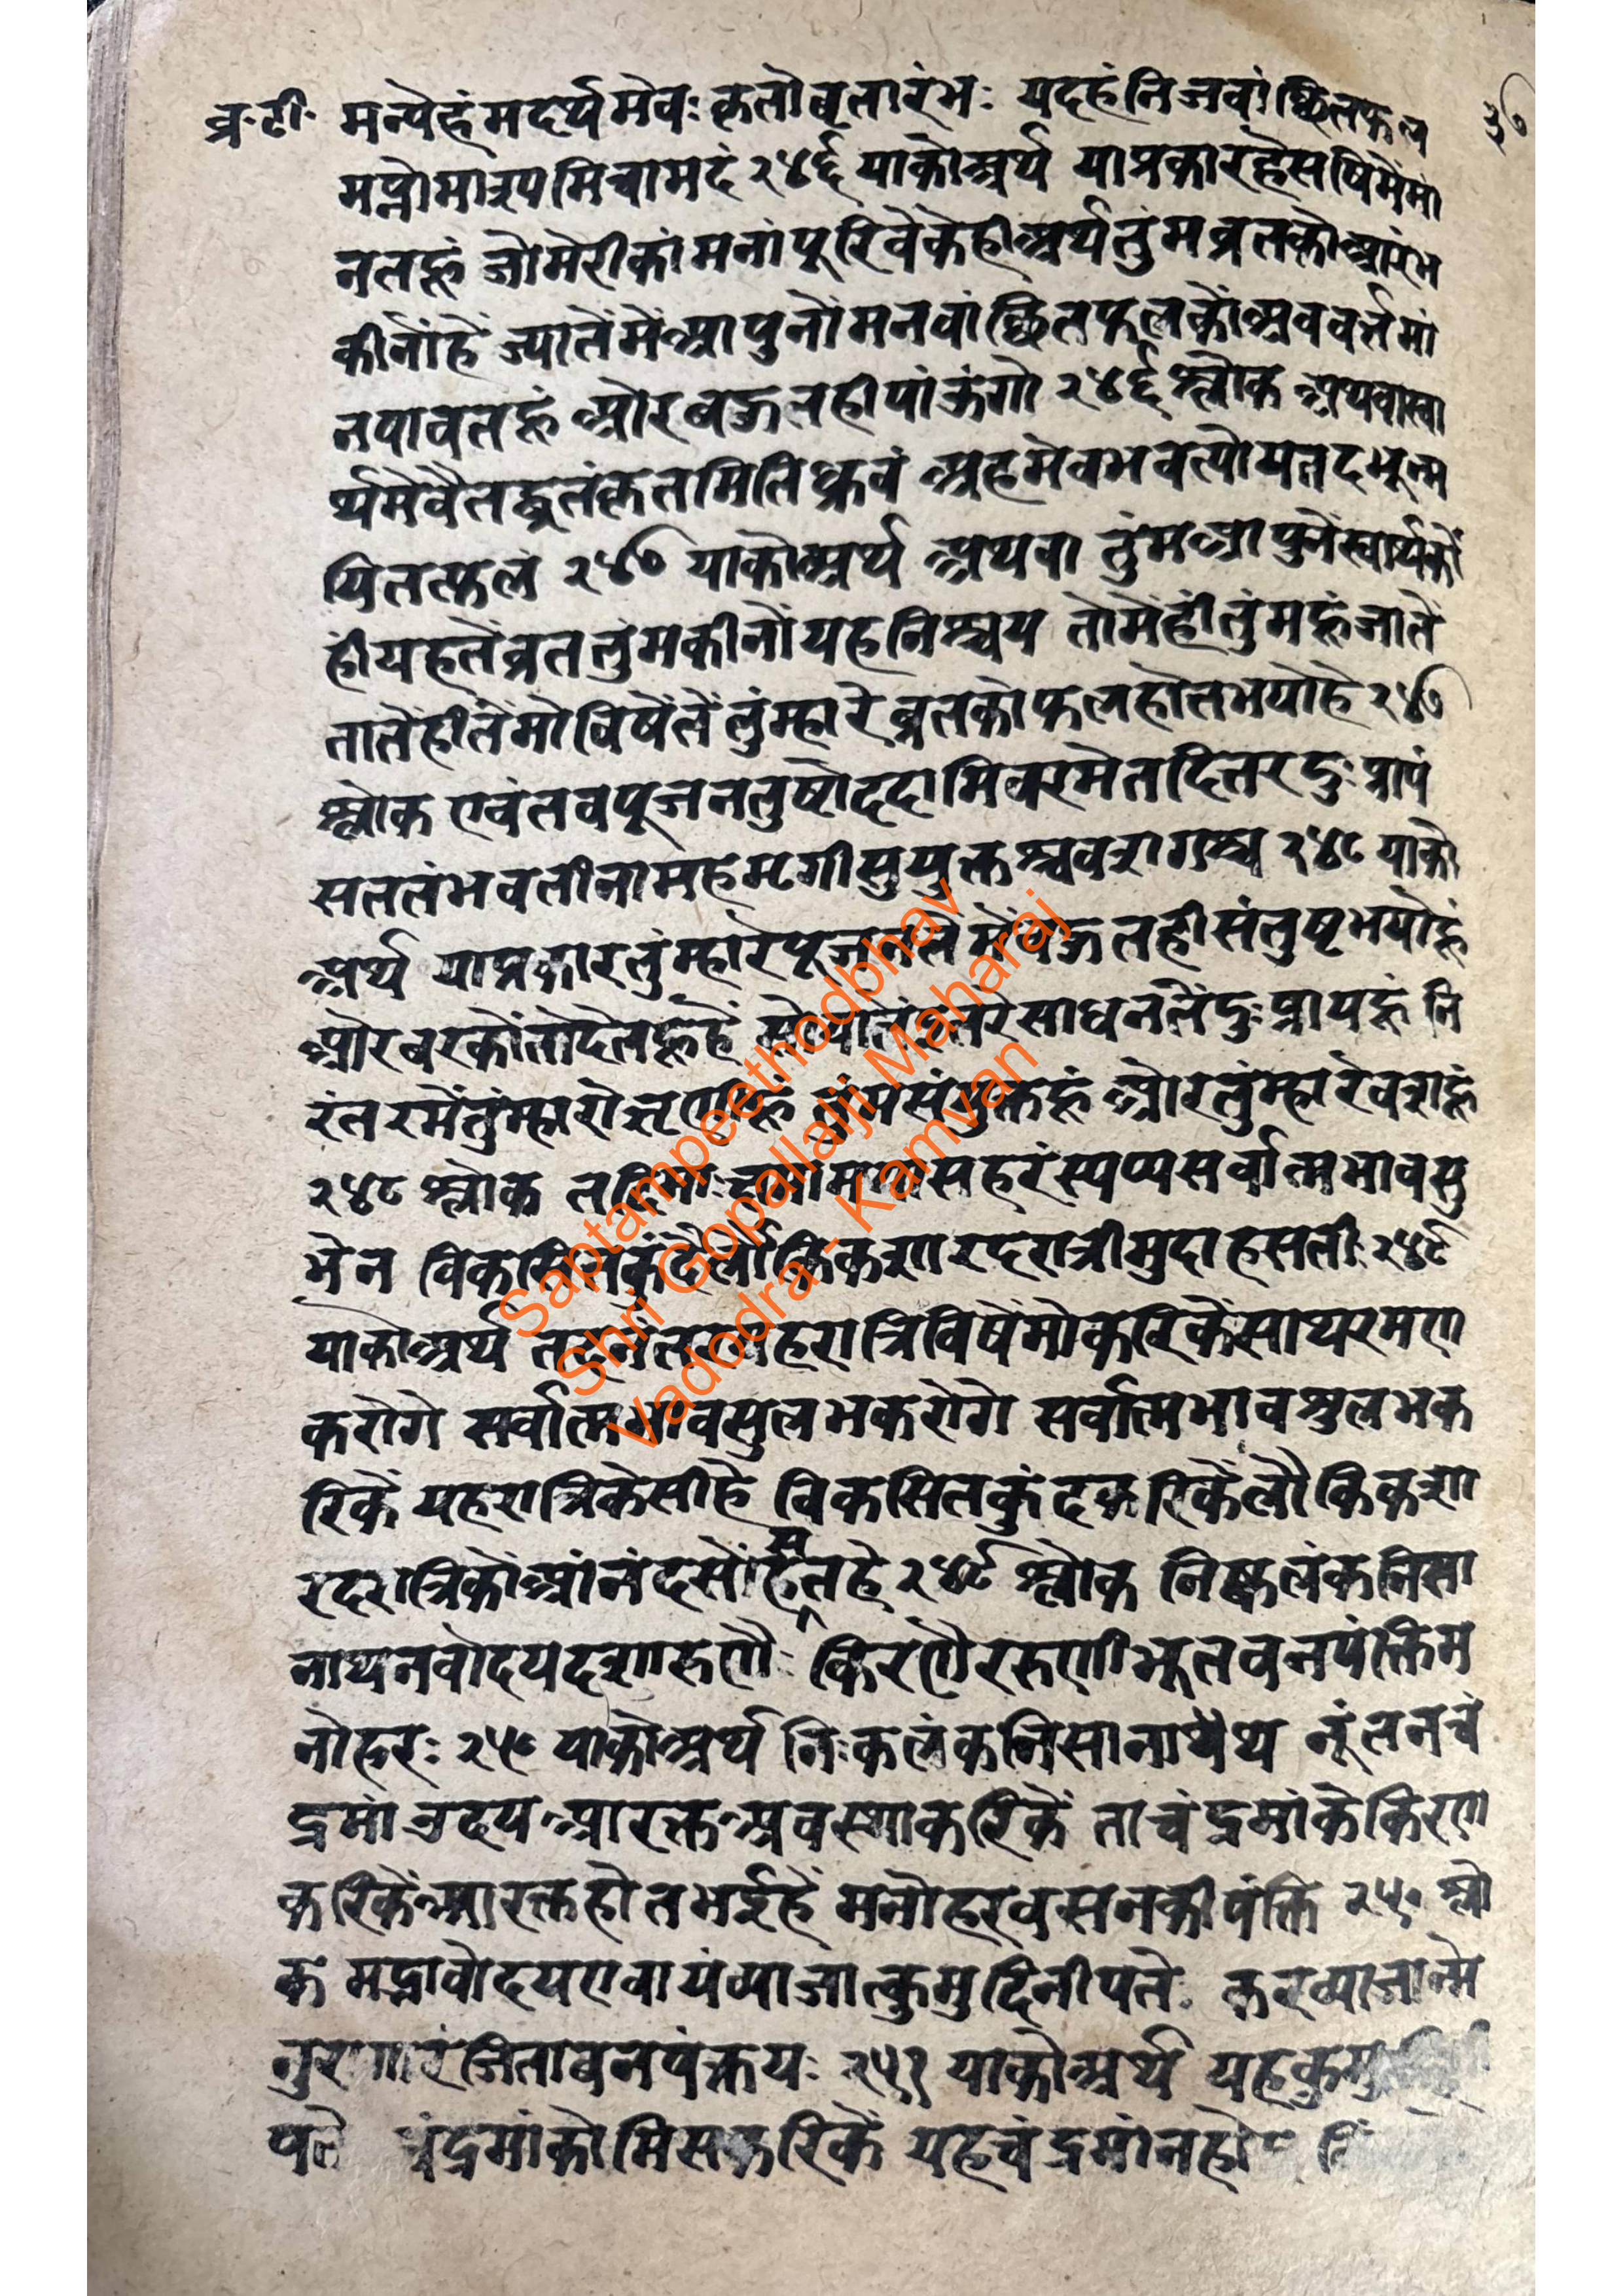 व्र॰टी॰ मन्येहंमदर्थमेवः कृतोवृतारंभः यदहंनिजवांछितफल ३७
मप्नोमाश्यमिचामदं २४६ याकोअर्थ याप्रकारहेसषिमेंमां
नतहूं जोमेरीकांमनांपूरिवेकेहीअर्थतुंमव्रतकोआरंभ
कीनोंहें ज्यातेंमेंआपुनोंमनवांछितफलकोंअबवर्त्तमां
नपावतहूं ओरबऊतहीपांऊंगो २४६ श्लोक अथवास्वा
र्थमेवैतद्धृतंकृतमितिध्रुवं अहमेवभवत्योयतदभून्म
यितत्फलं २४७ याकोअर्थ अथवा तुंमआपुनेंस्वार्थकों
हींयहतेंव्रततुंमकीनोंयहनिश्चय तोमेंहींतुंमहूंजातें
तातेंहीतेंमोविषेंतेंतुंम्हारेव्रतकोफलहोतभयोहे २४७
श्लोक एवंतवपूजनतुष्टोददामिवरमेतदितरदुःप्रापं
सततंभवतीनामहमृणीसुयुक्तश्चवशगश्च २४८ याको
अर्थ याप्रकारतुंम्हारेपूजनतेंमेंबऊतहीसंतुष्टभयोहूं
ओरबरकोंतोदेतहूंहें सोयातेंइतरेसाधनतेंदुःप्रायहूं नि
रंतरमेंतुंम्हारोऋणीहूं तुंमसंयुक्तहूं ओरतुंम्हारेवशहूं
२४८ श्लोक मयासहरंस्यप्यसर्वात्मभावसु
भेन विकसितकुंदैर्लौकिकशारदरात्रीमुदाहसतीः २४९
याकोअर्थ यहरात्रिविषेंमोकरिकेंसाथरमण
करोगे सर्वात्मभावसुलभकरोगे सर्वात्मभावशुलभक
रिकें यहरात्रिकेसीहे विकसितकुंदकरिकेंलौकिकशा
रदरात्रिकोंआंनंदसोंहसतहे २४९ श्लोक निष्कलंकनिसा
नाथनवोदयदशारुणैः किरणैररुणीभूतवनपंक्तिम
नोहरः २५० याकोअर्थ निःकलंकनिसानाथेथ नूंतनचं
द्रमांउदयआरक्तअवस्थाकरिकें ताचंद्रमांकेकिरण
करिकेंआरक्तहोतभईहें मनोहरवसनकीपंक्ति २५० श्लो
क मद्भावोदयएवायंव्याजात्कुमुदिनीपतेः करव्याजान्मे
नुरागारंजिताबनपंक्तयः २५१ याकोअर्थ यहकुमु
पते चंद्रमांकोमिसकरिकें यहचंद्रमांनहो
Saptampeethodbhav
Shri Gopallalji Maharaj
Vadodra - Kamvan